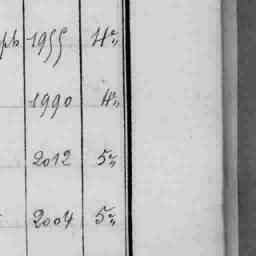 ph 1955 4e"
1990 4e"
2012 5e"
2004 5e"